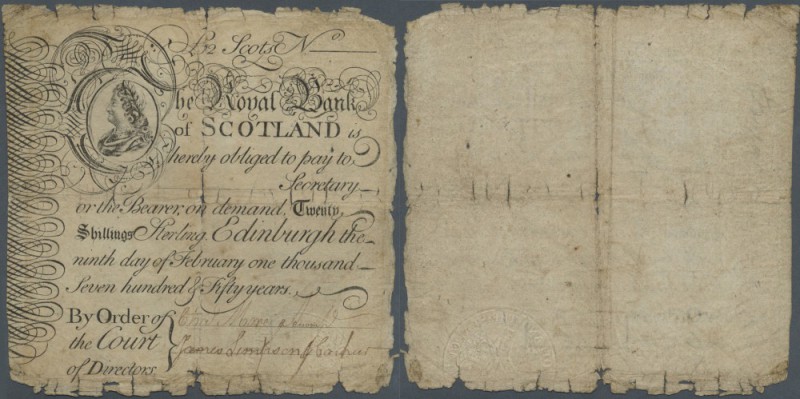 £12 Scots No
The Royal Bank
of SCOTLAND is
hereby obliged to pay to
Secretary
or the Bearer, on demand, Twenty
Shillings Sterling. Edinburgh the
ninth day of February one thousand
Seven hundred & Fifty years.
By Order of
the Court
James Simpson
of Directors.